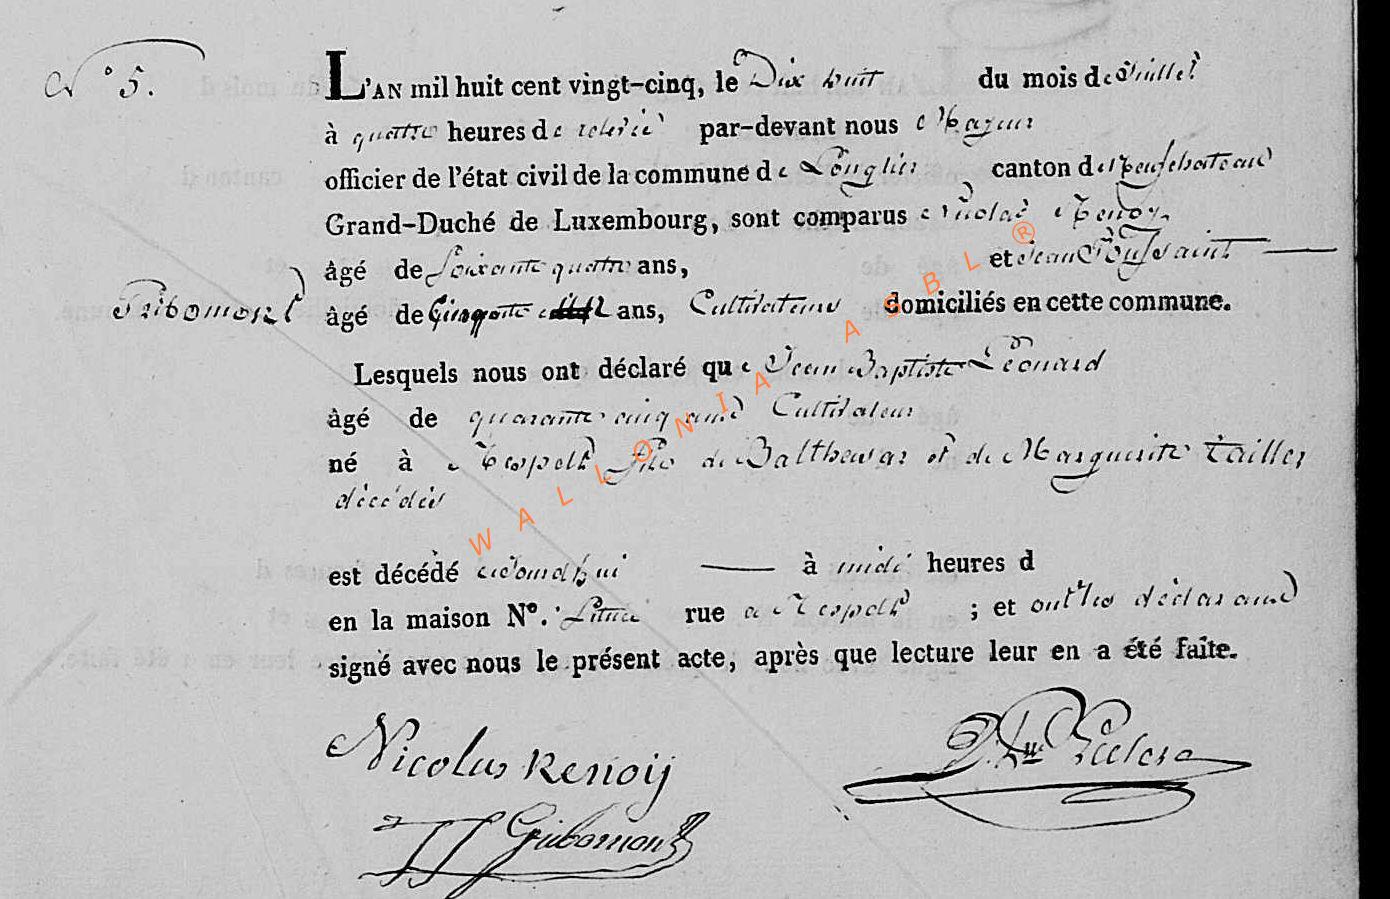 N° 5.
L'AN mil huit cent vingt-cinq, le Dix huit du mois de Juillet
à quatre heures de relevée par-devant nous Mayeur
officier de l'état civil de la commune de Longlier canton de Neufchateau
Grand-Duché de Luxembourg, sont comparus Nicolas Renoy
âgé de Soixante quatre ans, et Jean Toussaint
Gribomont âgé de Cinquante ans, Cultivateurs domiciliés en cette commune.
Lesquels nous ont déclaré que Jean Baptiste Léonard
âgé de quarante cinq ans Cultivateur
né à Respelt fils de Balthewar et de Marguerite Tailler
décédés
est décédé aujourd'hui à midi heures d
en la maison N°. Située rue a Respelt ; et ont les déclarans
signé avec nous le présent acte, après que lecture leur en a été faite.
Nicolas Renoy
JJ Gribomont
WALLONIA ASBL ®